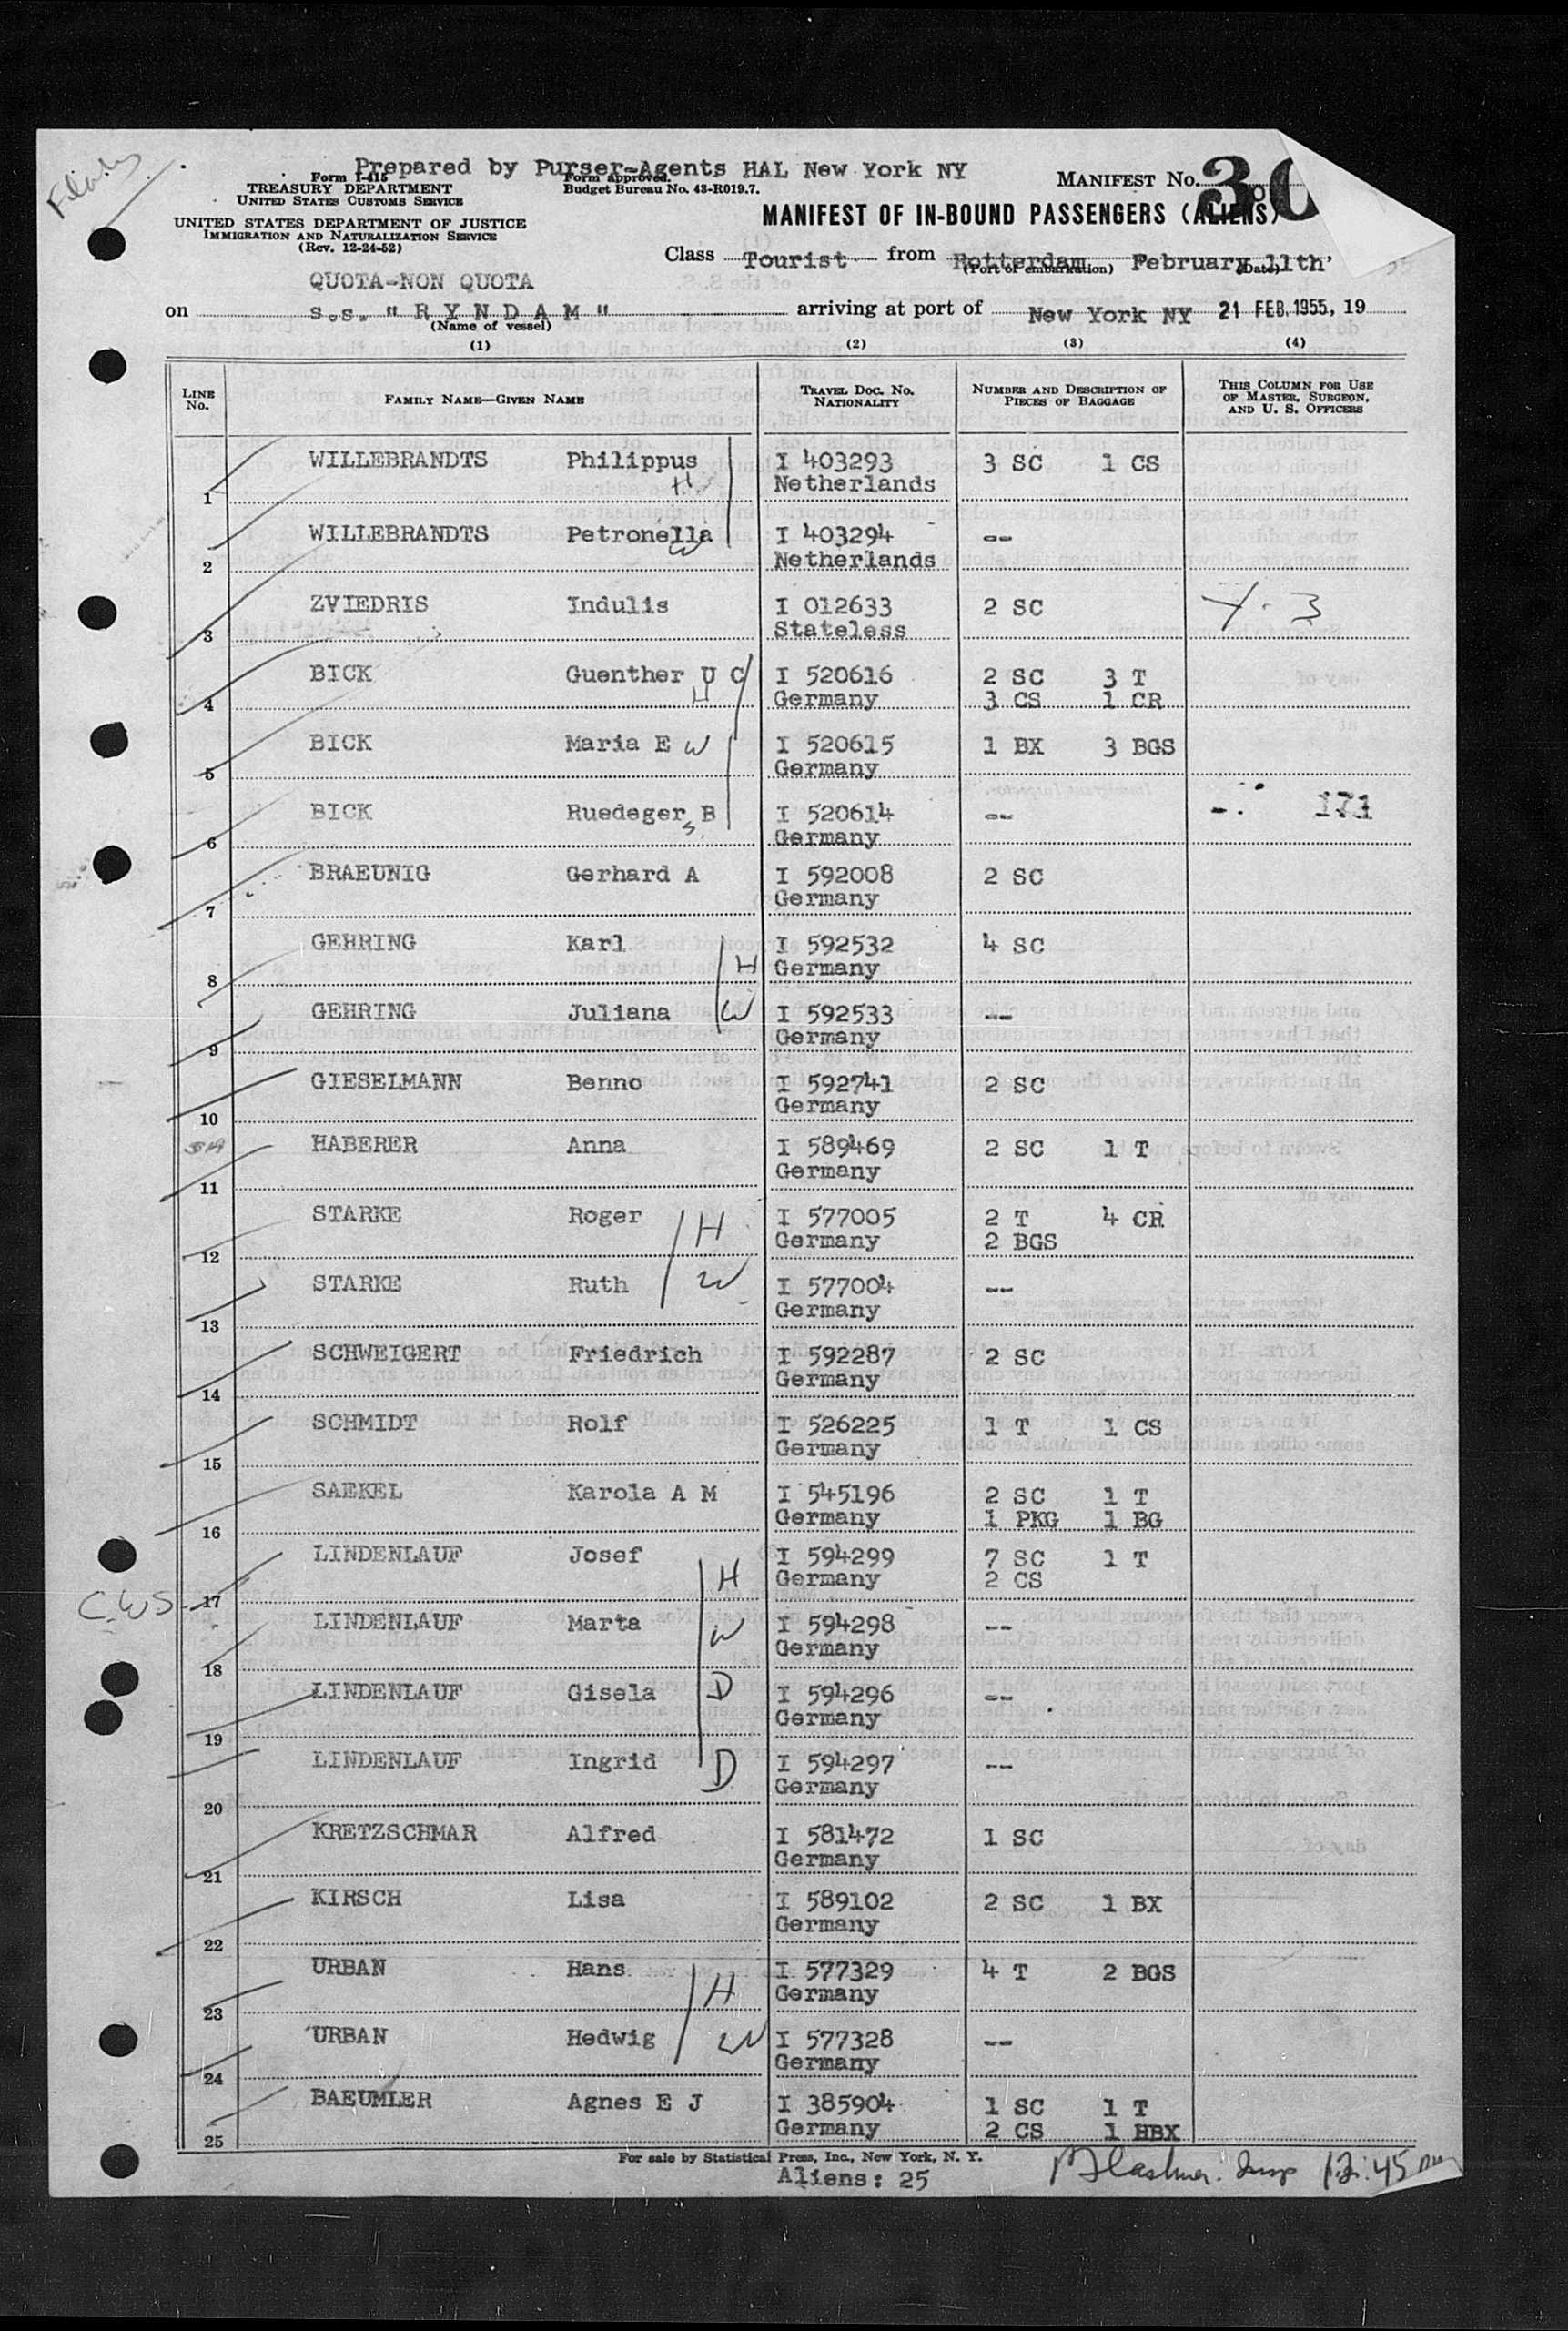 Prepared by Purser-Agents HAL New York NY
Form I-415
TREASURY DEPARTMENT
UNITED STATES CUSTOMS SERVICE
Form approved.
Budget Bureau No. 43-R019.7.
MANIFEST No. 30
UNITED STATES DEPARTMENT OF JUSTICE
IMMIGRATION AND NATURALIZATION SERVICE
(Rev. 12-24-52)
MANIFEST OF IN-BOUND PASSENGERS (ALIENS)
Class Tourist from Rotterdam February 11th'
(Port of embarkation) (Date)
QUOTA-NON QUOTA
on s.s. " R Y N D A M " arriving at port of New York NY 21 FEB. 1955, 19
(Name of vessel)
(1) (2) (3) (4)
LINE No. FAMILY NAME—GIVEN NAME TRAVEL DOC. No. NATIONALITY NUMBER AND DESCRIPTION OF PIECES OF BAGGAGE THIS COLUMN FOR USE OF MASTER, SURGEON, AND U. S. OFFICERS
1 WILLEBRANDTS Philippus H I 403293 Netherlands 3 SC 1 CS
2 WILLEBRANDTS Petronella W I 403294 Netherlands --
3 ZVIEDRIS Indulis I 012633 Stateless 2 SC
4 BICK Guenther U C H I 520616 Germany 2 SC 3 T 3 CS 1 CR
5 BICK Maria E W I 520615 Germany 1 BX 3 BGS
6 BICK Ruedeger B S I 520614 Germany -- 171
7 BRAEUNIG Gerhard A I 592008 Germany 2 SC
8 GEHRING Karl H I 592532 Germany 4 SC
9 GEHRING Juliana W I 592533 Germany --
10 GIESELMANN Benno I 592741 Germany 2 SC
11 HABERER Anna I 589469 Germany 2 SC 1 T
12 STARKE Roger H I 577005 Germany 2 T 4 CR 2 BGS
13 STARKE Ruth W I 577004 Germany --
14 SCHWEIGERT Friedrich I 592287 Germany 2 SC
15 SCHMIDT Rolf I 526225 Germany 1 T 1 CS
16 SAEKEL Karola A M I 545196 Germany 2 SC 1 T 1 PKG 1 BG
C.WS 17 LINDENLAUF Josef H I 594299 Germany 7 SC 1 T 2 CS
18 LINDENLAUF Marta W I 594298 Germany --
19 LINDENLAUF Gisela D I 594296 Germany --
20 LINDENLAUF Ingrid D I 594297 Germany --
21 KRETZSCHMAR Alfred I 581472 Germany 1 SC
22 KIRSCH Lisa I 589102 Germany 2 SC 1 BX
23 URBAN Hans H I 577329 Germany 4 T 2 BGS
24 URBAN Hedwig W I 577328 Germany --
25 BAEUMLER Agnes E J I 385904 Germany 1 SC 1 T 2 CS 1 HBX
For sale by Statistical Press, Inc., New York, N. Y.
Aliens: 25
12:45